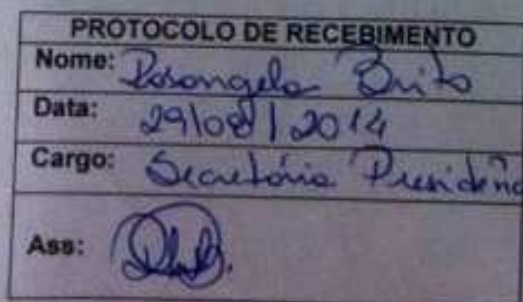 PROTOCOLO DE RECEBIMENTO
Nome: Rosangela Brito
Data: 29/08/2014
Cargo: Secretária Presidência
Ass: